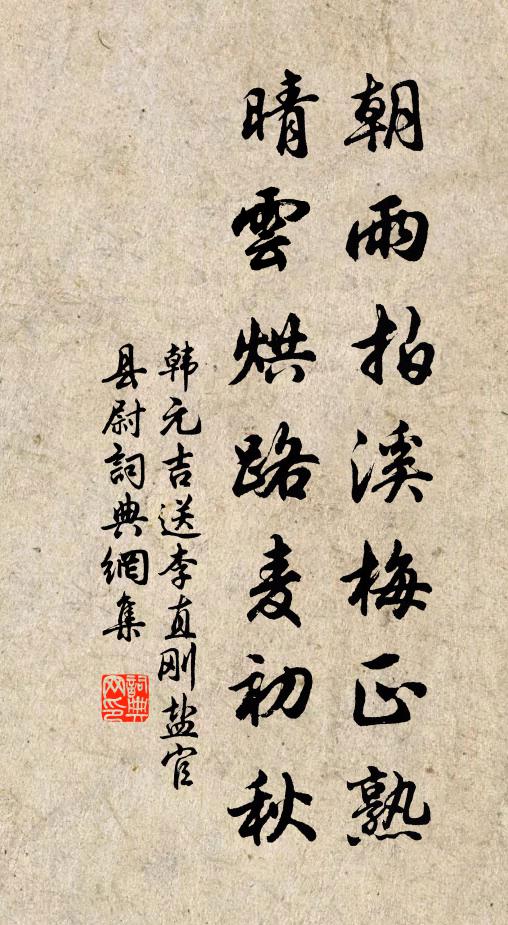 朝雨拍溪梅正熟
晴雲烘路麦初秋
韩元吉送李直刚盐官
县尉詞典網集
詞典
网印